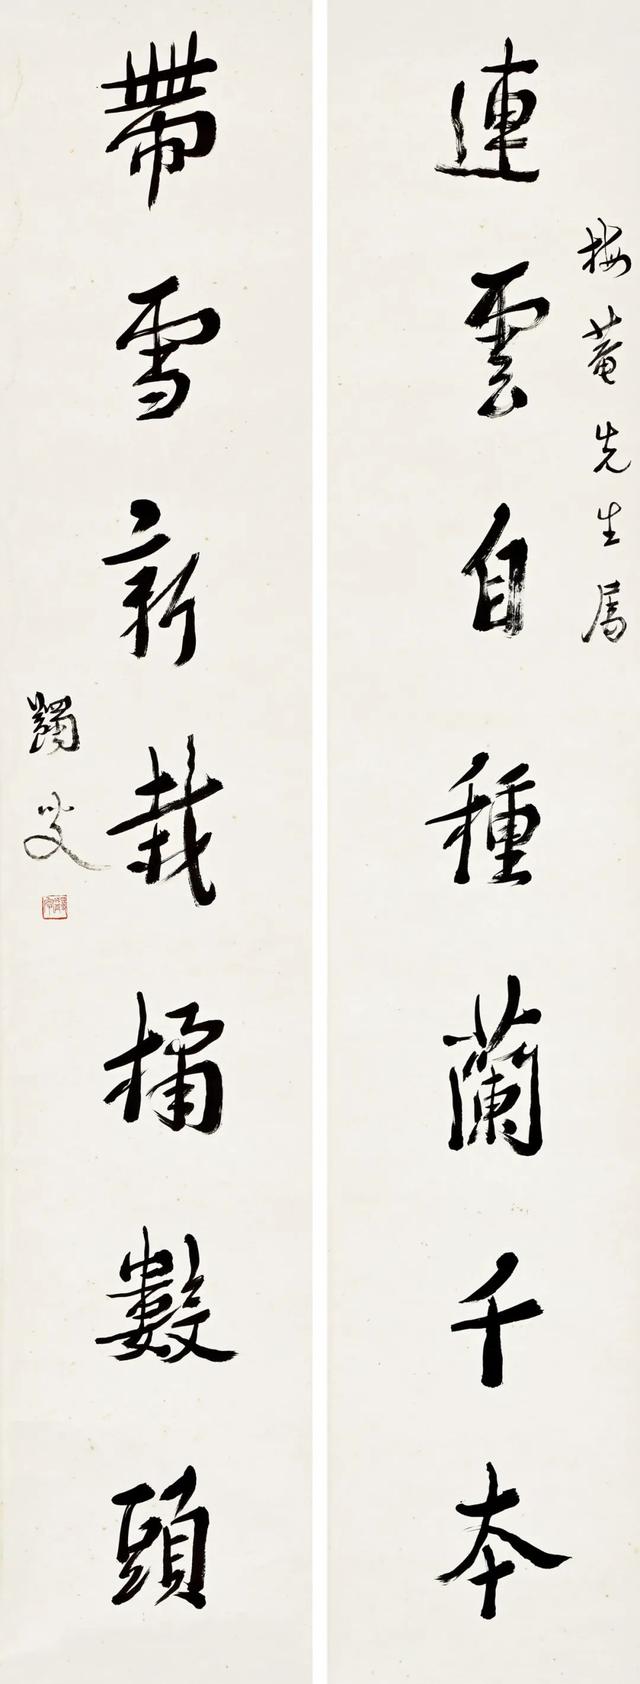 梅菴先生屬
連雲自種蘭千本
帶雪新栽橘數頭
蠲叟